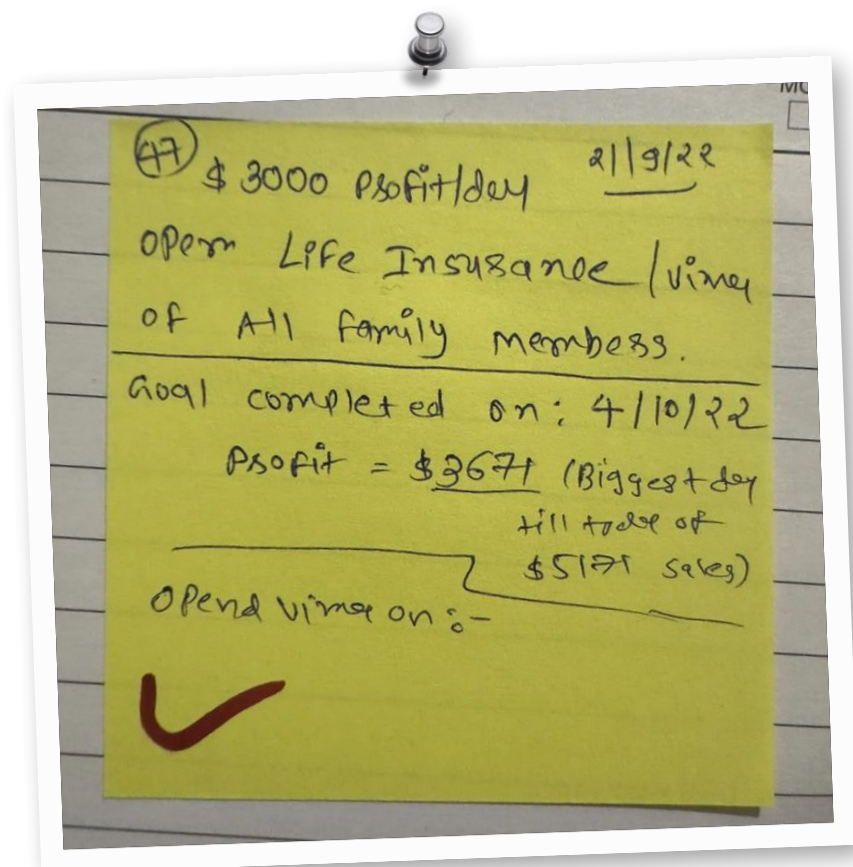 47
$3000 profit/day 21/9/22
open Life Insurance / vima
of All family members.
Goal completed on: 4/10/22
Profit = $3671 (Biggest day
till todae of
$5171 sales)
opend vima on :-